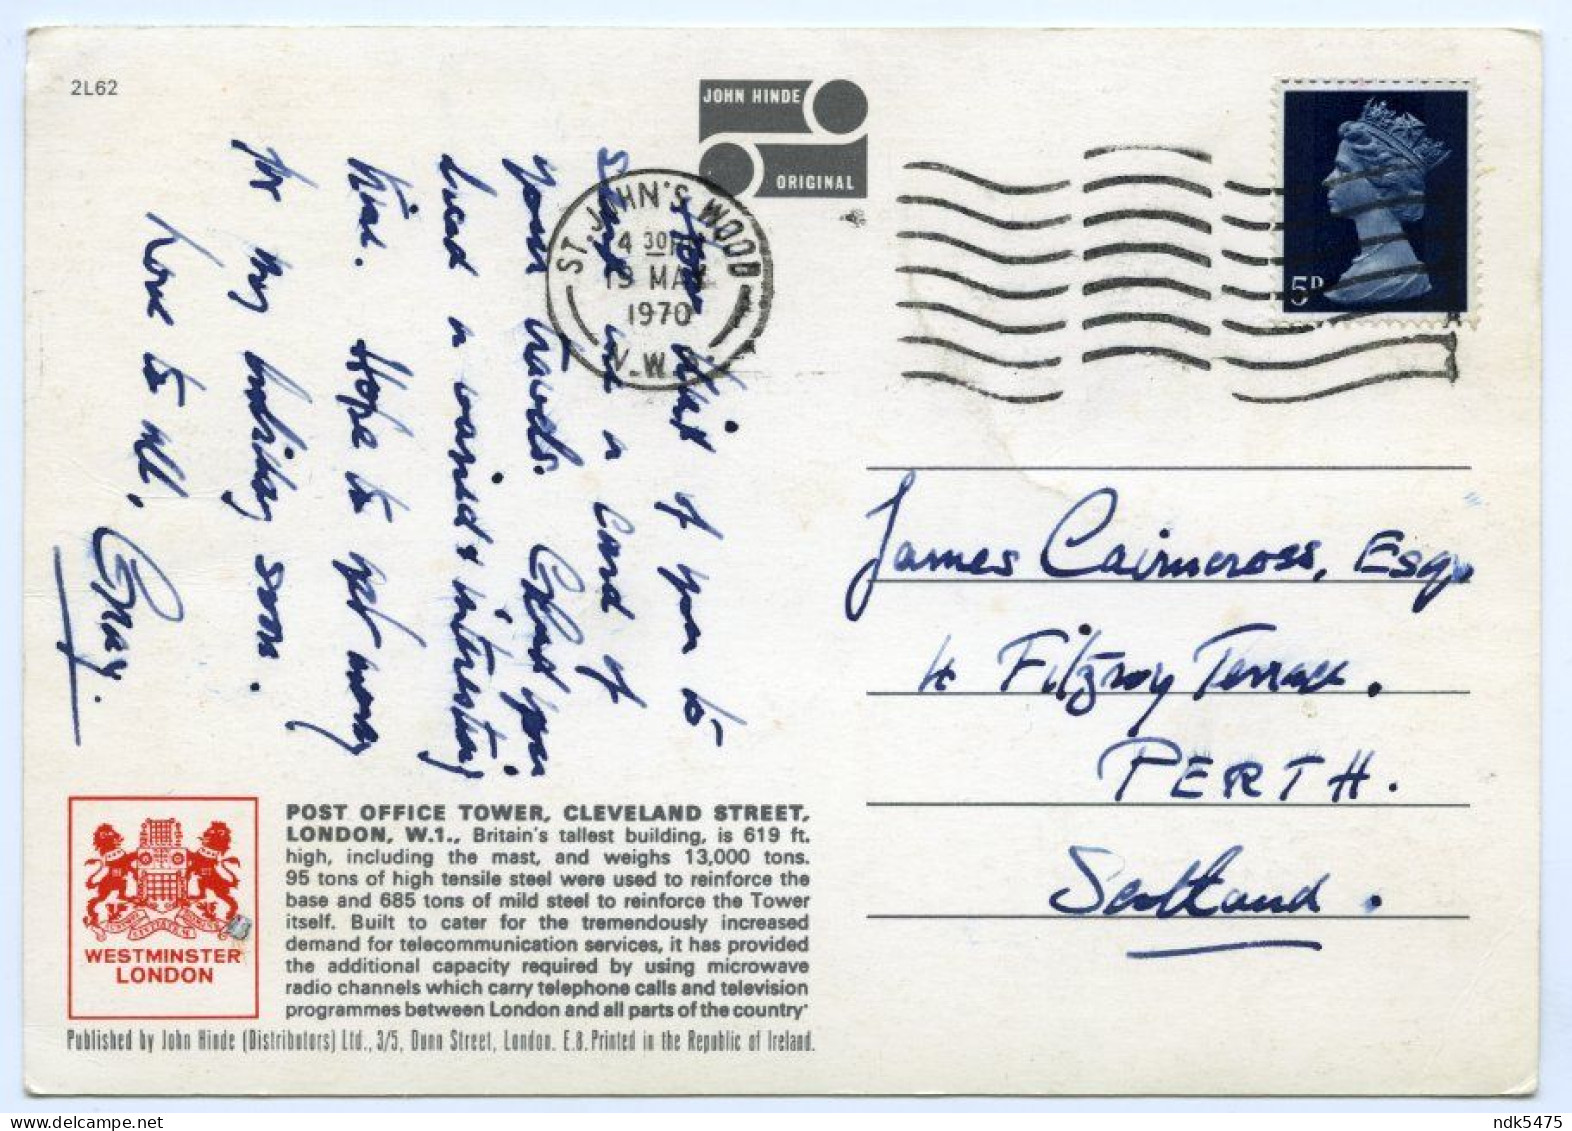 2L62
JOHN HINDE
ORIGINAL
ST. JOHN'S WOOD
4 30 PM
19 MAY
1970
N.W.
5D
How nice of you to
send me a card of
your travels. Glad you
had a varied & interesting
time. Hope to get away
for my holiday soon.
Love to all,
Gray.
James Cairncross, Esq.
4 Fitzroy Terrace.
PERTH.
Scotland.
WESTMINSTER
LONDON
POST OFFICE TOWER, CLEVELAND STREET,
LONDON, W.1., Britain's tallest building, is 619 ft.
high, including the mast, and weighs 13,000 tons.
95 tons of high tensile steel were used to reinforce the
base and 685 tons of mild steel to reinforce the Tower
itself. Built to cater for the tremendously increased
demand for telecommunication services, it has provided
the additional capacity required by using microwave
radio channels which carry telephone calls and television
programmes between London and all parts of the country
Published by John Hinde (Distributors) Ltd., 3/5, Dunn Street, London. E.8. Printed in the Republic of Ireland.
ndk5475